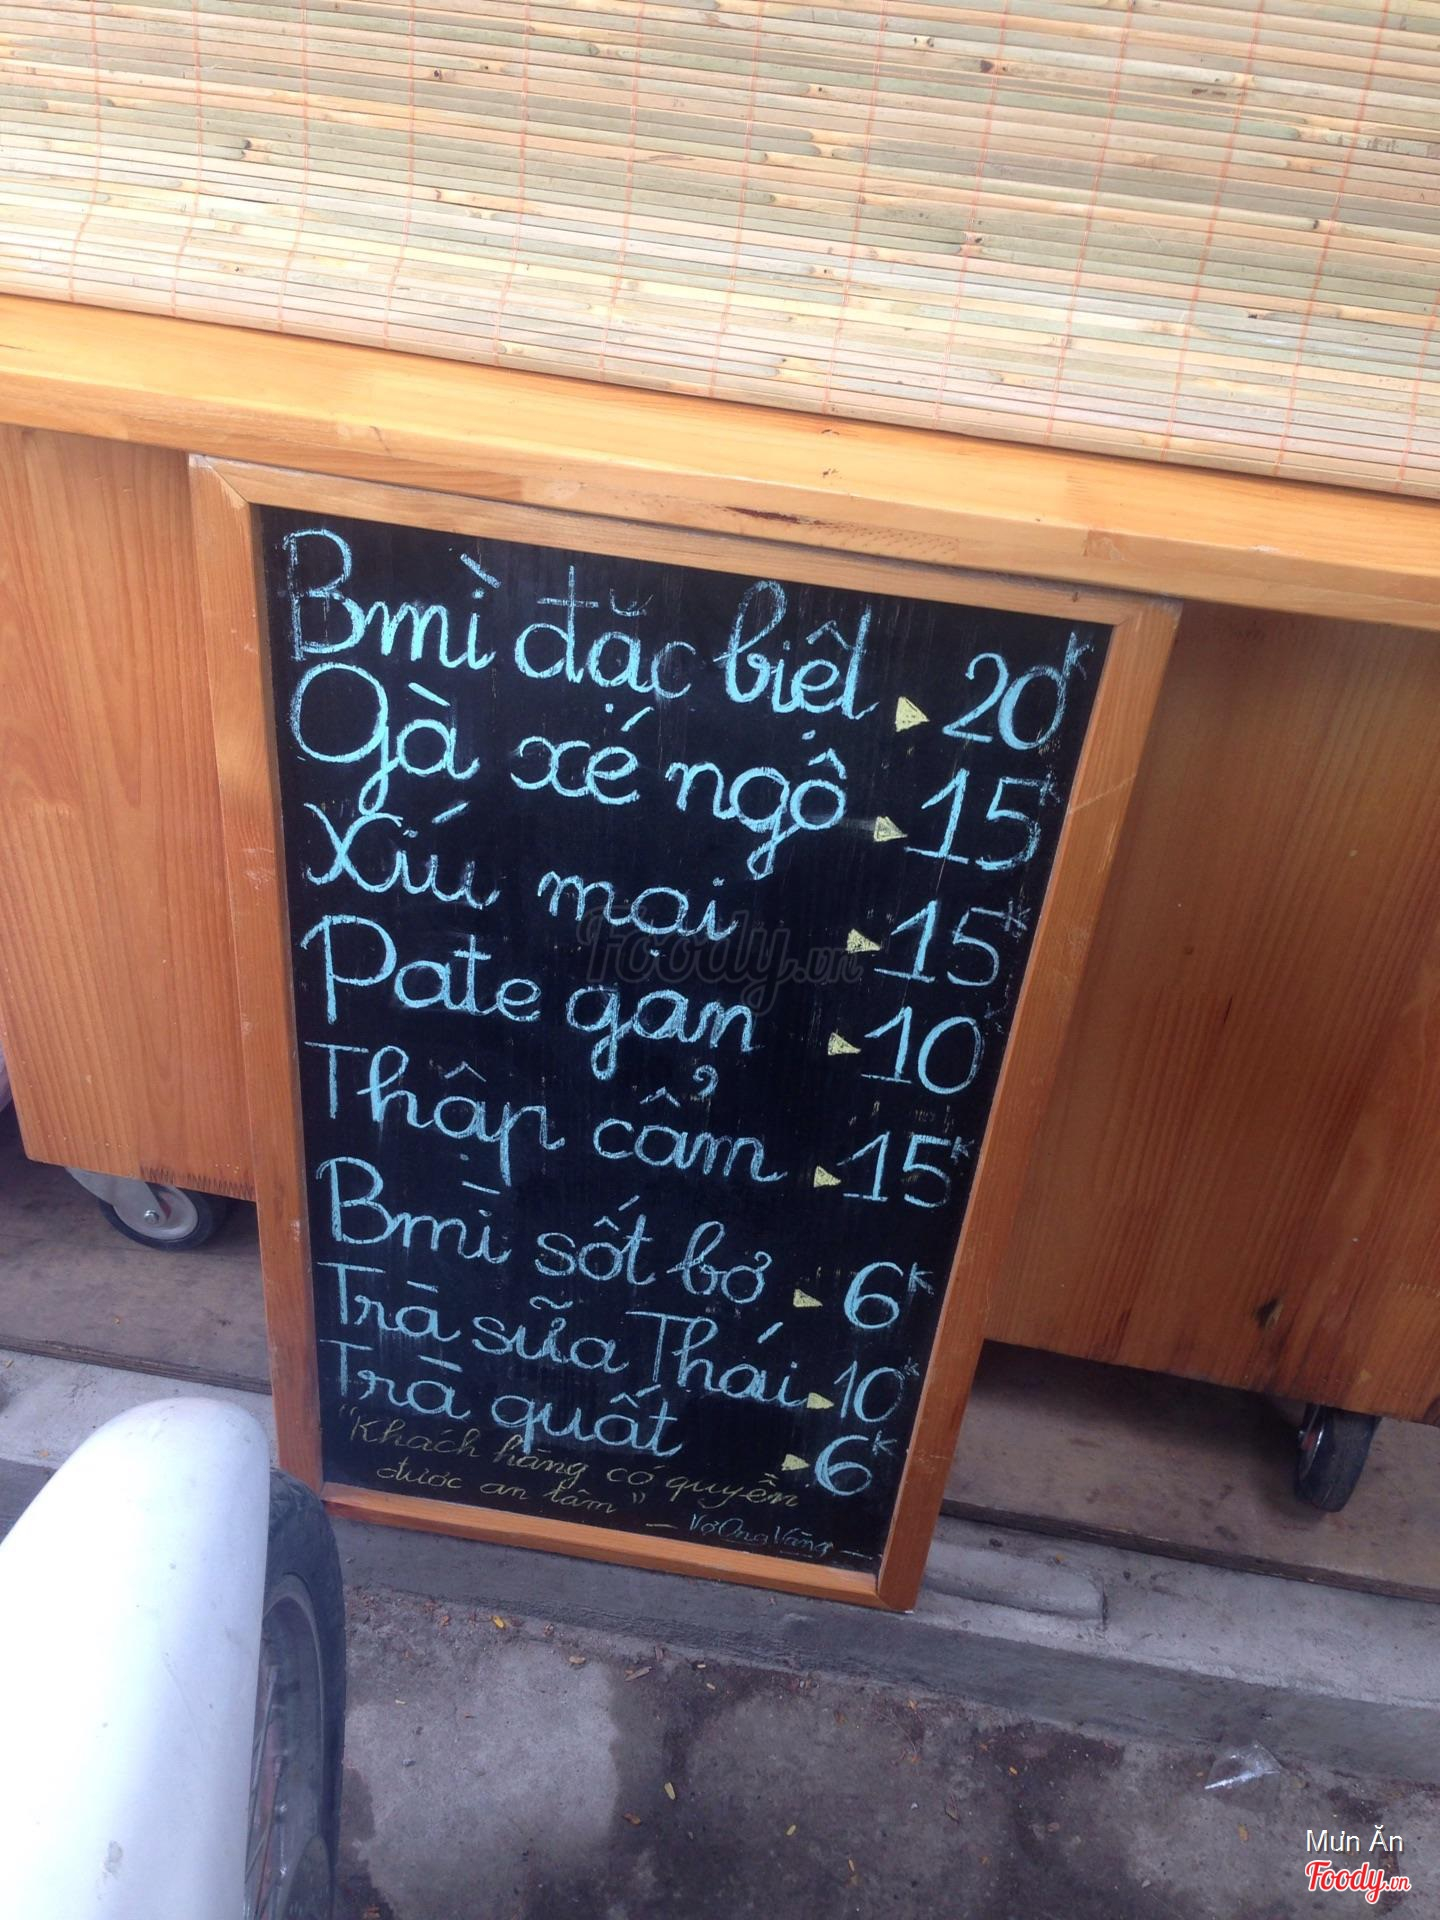 Bmì đặc biệt 20K
Gà xé ngô 15K
Xíu mại 15K
Pate gan 10K
Thập cẩm 15K
Bmì sốt bơ 6K
Trà sữa Thái 10K
Trà quất 6K
"Khách hàng có quyền
được an tâm"
Foody.vn
Mưn Ăn
Foody.vn